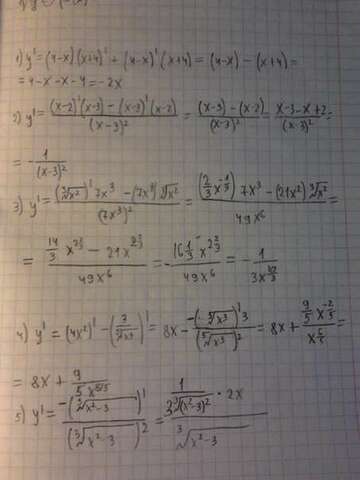 1) y' = (4-x)(x+4)' + (4-x)'(x+4) = (4-x) - (x+4) =
= 4-x-x-4 = -2x
2) y' = \frac{(x-2)'(x-3) - (x-3)'(x-2)}{(x-3)^2} = \frac{(x-3)-(x-2)}{(x-3)^2} \frac{x-3-x+2}{(x-3)^2} =
= -\frac{1}{(x-3)^2}
3) y' = \frac{(\sqrt[3]{x^2})' 7x^3 - (7x^3)' \sqrt[3]{x^2}}{(7x^3)^2} = \frac{(\frac{2}{3}x^{-\frac{1}{3}}) 7x^3 - (21x^2) \sqrt[3]{x^2}}{49x^6} =
= \frac{\frac{14}{3}x^{2\frac{2}{3}} - 21x^{2\frac{2}{3}}}{49x^6} = -\frac{16\frac{1}{3}x^{2\frac{2}{3}}}{49x^6} = -\frac{1}{3x^{\frac{10}{3}}}
4) y' = (4x^2)' - (\frac{3}{\sqrt[5]{x^3}})' = 8x - \frac{-(\sqrt[5]{x^3})' 3}{(\sqrt[5]{x^3})^2} = 8x + \frac{\frac{9}{5}x^{-\frac{2}{5}}}{x^{\frac{6}{5}}} =
= 8x + \frac{9}{5x^{8/5}}
5) y' = \frac{-(\sqrt[3]{x^2-3})'}{(\sqrt[3]{x^2-3})^2} = \frac{\frac{1}{3\sqrt[3]{(x^2-3)^2}} \cdot 2x}{\sqrt[3]{x^2-3}}